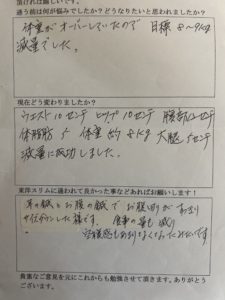 通う前は何が悩みでしたか？どうなりたいと思われましたか？
体重がオーバーしていたので 目標 8〜9kg
減量でした。
現在どう変わりましたか？
ウエスト10センチ ヒップ10センチ 腹部 センチ
体脂肪 5 体重 約8kg 大腿5センチ
減量に成功しました。
東洋スリムに通われて良かった事などあればお願いします！
耳の鍼とお腹の鍼で お腹回りが
サイズダウンした様です。食事の量も減り
空腹感もあまりなくなったみたいです
貴重なご意見を元にこれからも勉強させて頂きます。ありがとう
ございます。